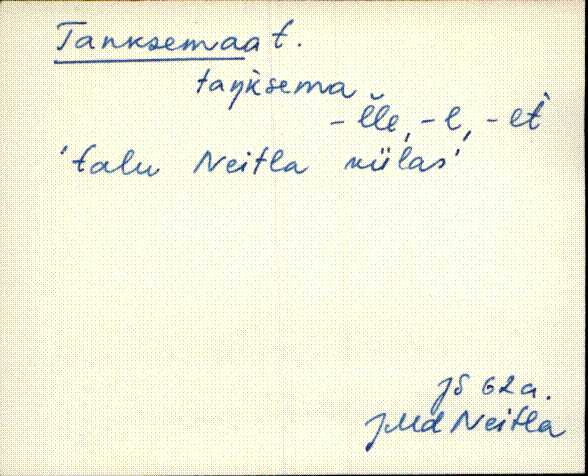 Tanksemaa t.
taŋ̀ksema
-l̆le, -l, -lt̀
'talu Neitla külas'
JS 62a.
JMd Neitla